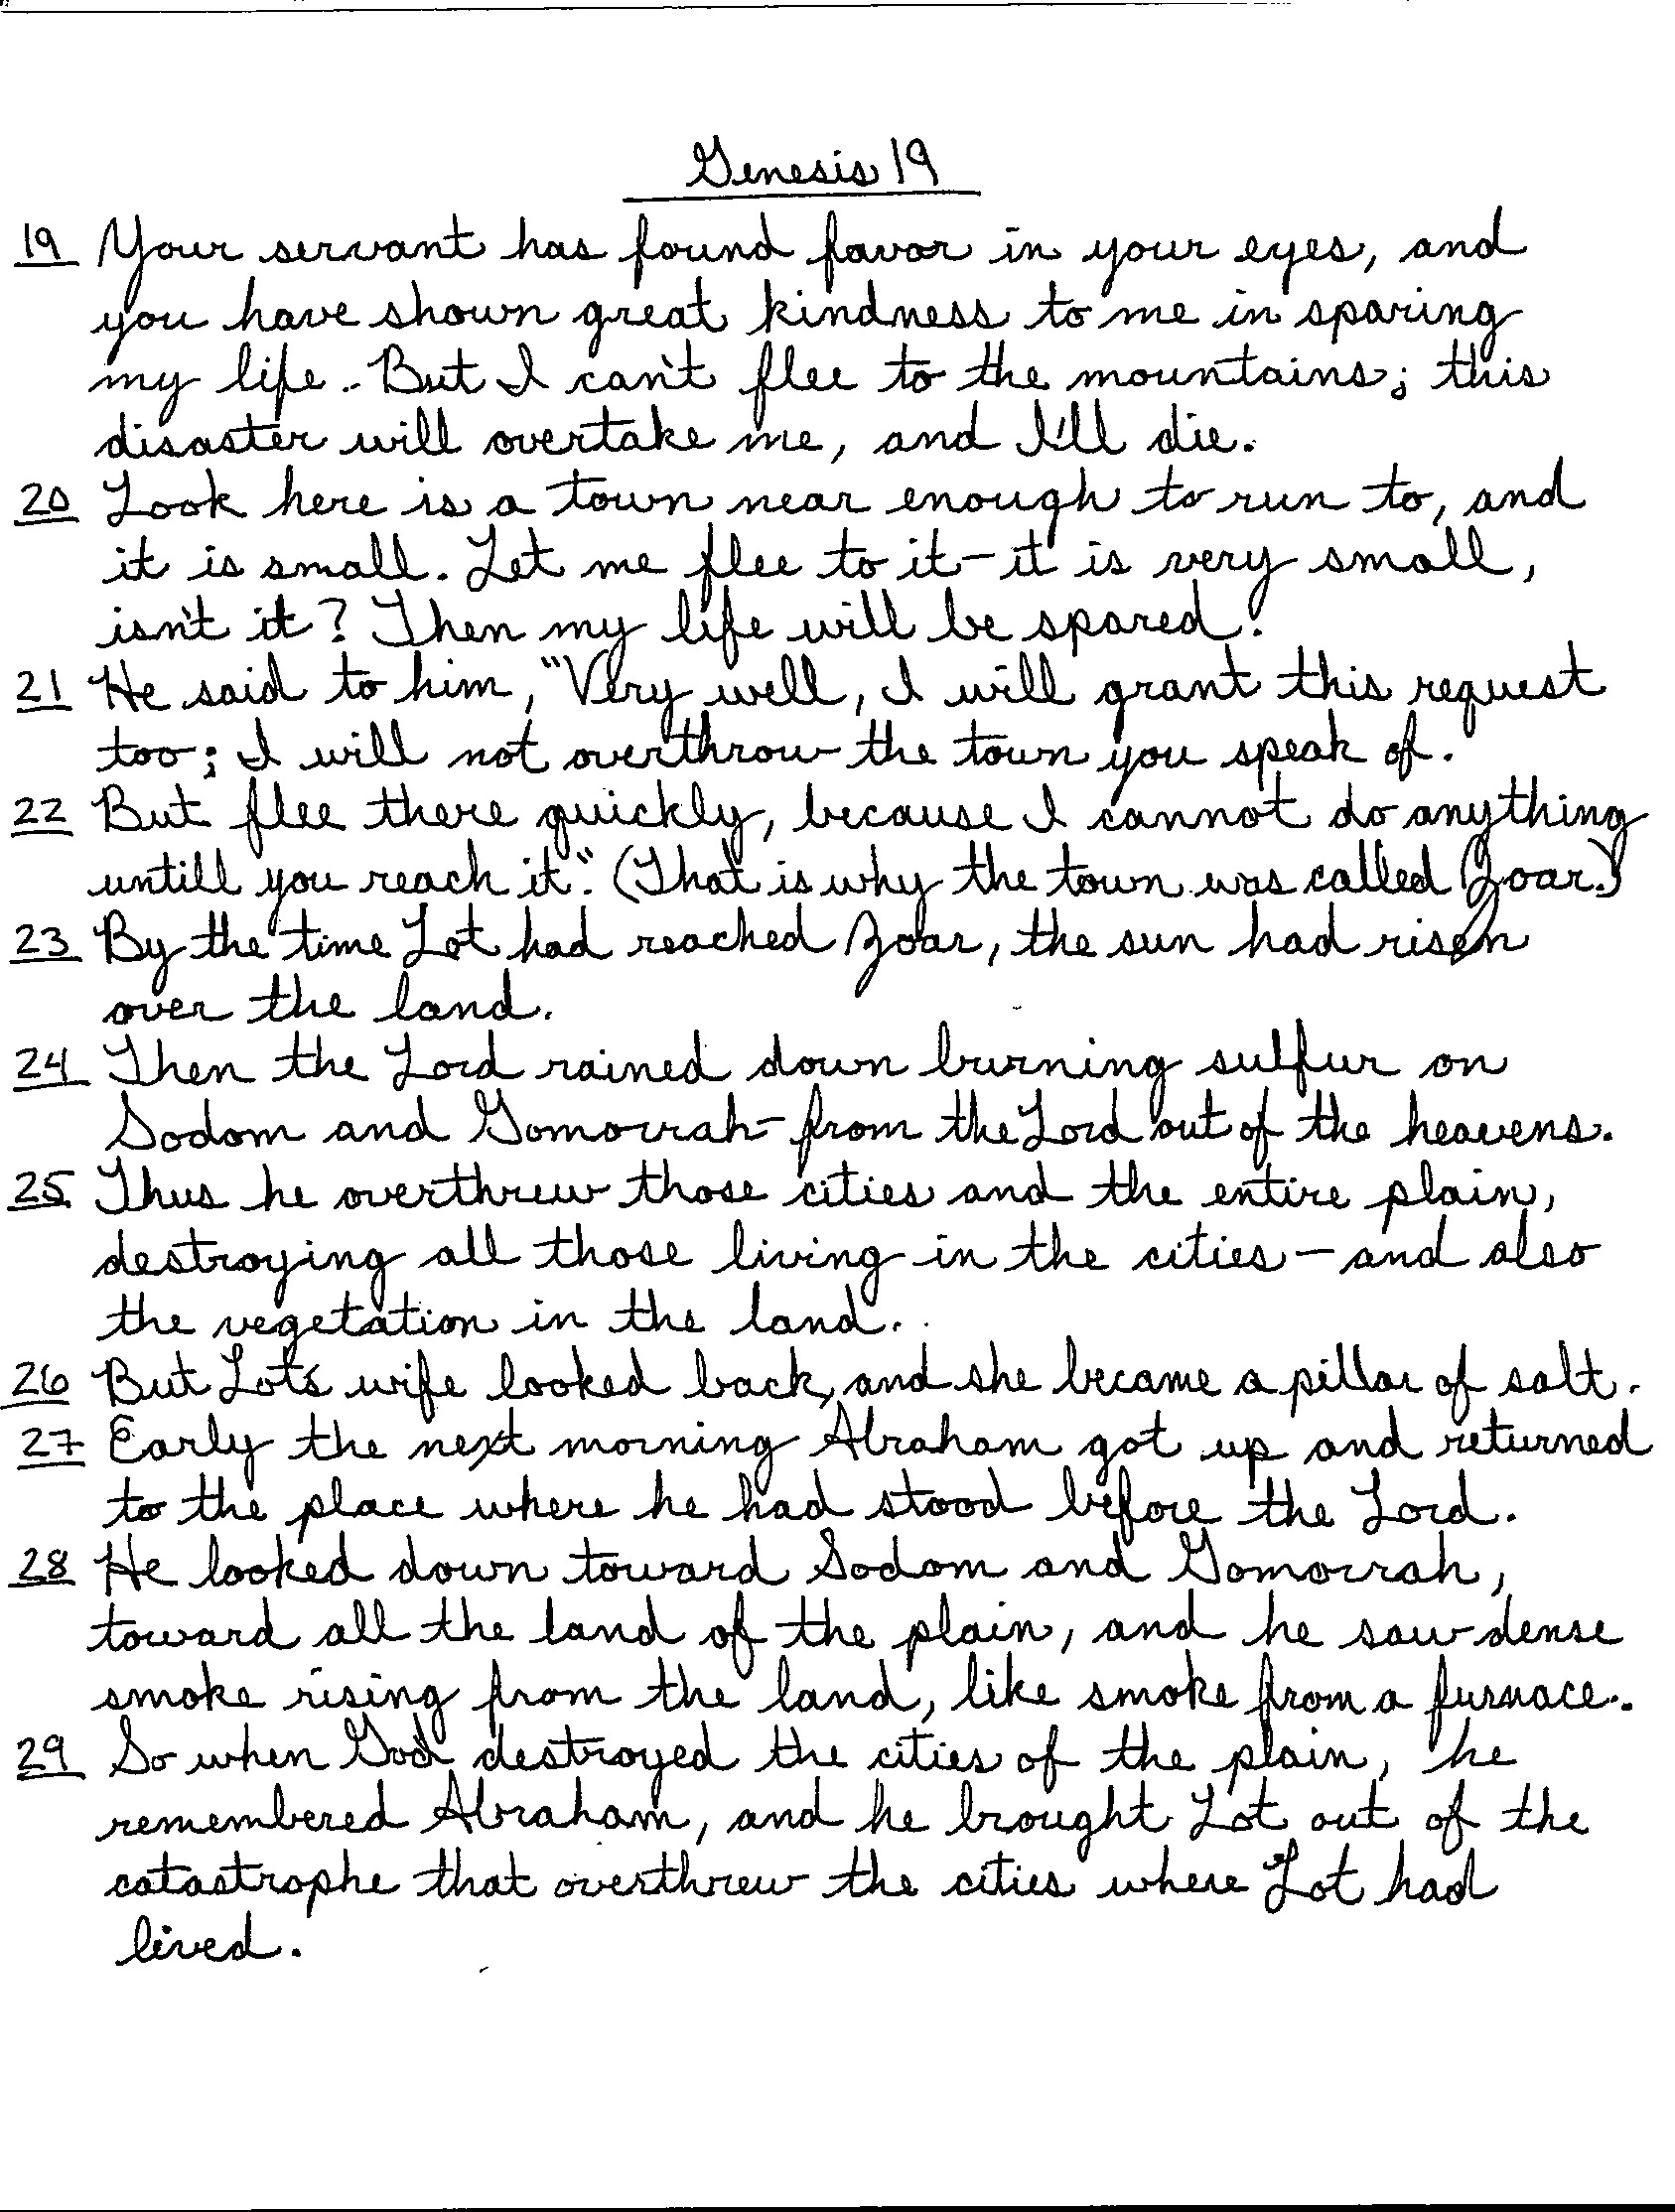 Genesis 19
19 Your servant has found favor in your eyes, and
you have shown great kindness to me in sparing
my life. But I can't flee to the mountains; this
disaster will overtake me, and I'll die.
20 Look here is a town near enough to run to, and
it is small. Let me flee to it - it is very small,
isn't it? Then my life will be spared.
21 He said to him, "Very well, I will grant this request
too; I will not overthrow the town you speak of.
22 But flee there quickly, because I cannot do anything
untill you reach it." (That is why the town was called Zoar.)
23 By the time Lot had reached Zoar, the sun had risen
over the land.
24 Then the Lord rained down burning sulfur on
Sodom and Gomorrah - from the Lord out of the heavens.
25 Thus he overthrew those cities and the entire plain,
destroying all those living in the cities - and also
the vegetation in the land.
26 But Lot's wife looked back, and she became a pillar of salt.
27 Early the next morning Abraham got up and returned
to the place where he had stood before the Lord.
28 He looked down toward Sodom and Gomorrah,
toward all the land of the plain, and he saw dense
smoke rising from the land, like smoke from a furnace.
29 So when God destroyed the cities of the plain, he
remembered Abraham, and he brought Lot out of the
catastrophe that overthrew the cities where Lot had
lived.